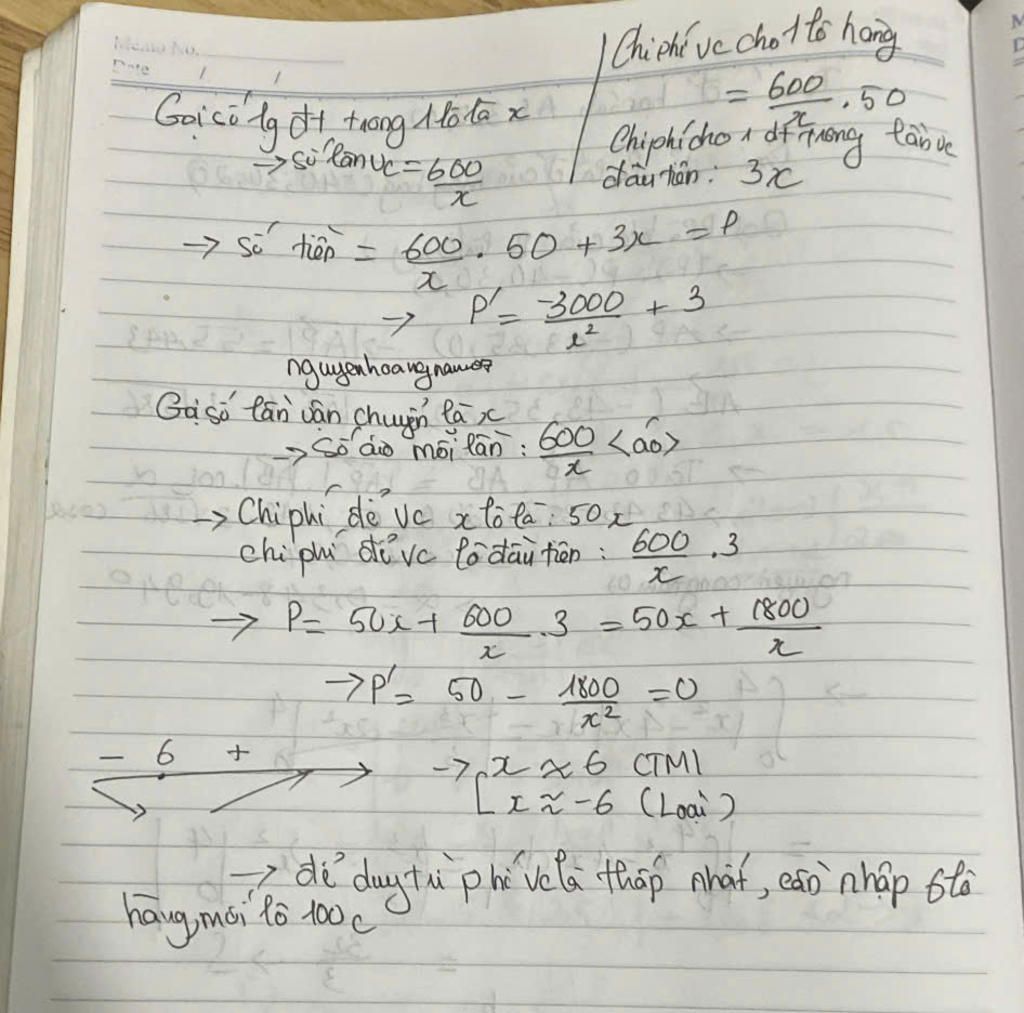 Memo No.
Date / /
Gọi số lg đt trong 1 lô là x
→ số lần vc = 600/x
Chi phí vc cho 1 lô hàng
= 600/x . 50
Chi phí cho 1 đt trong lần vc
đầu tiên: 3x
→ Số tiền = 600/x . 50 + 3x = P
→ P' = -3000/x² + 3
nguyenhoangnam
Gọi số lần vận chuyển là x
→ Số áo mỗi lần : 600/x <áo>
→ Chi phí để vc x lô là: 50x
chi phí để vc lô đầu tiên : 600/x . 3
→ P = 50x + 600/x . 3 = 50x + 1800/x
→ P' = 50 - 1800/x² = 0
- 6 +
→ [ x ≈ 6 (TM)
x ≈ -6 (Loại)
→ để duy trì phí vc là thấp nhất, cần nhập 6 lô
hàng, mỗi lô 100c